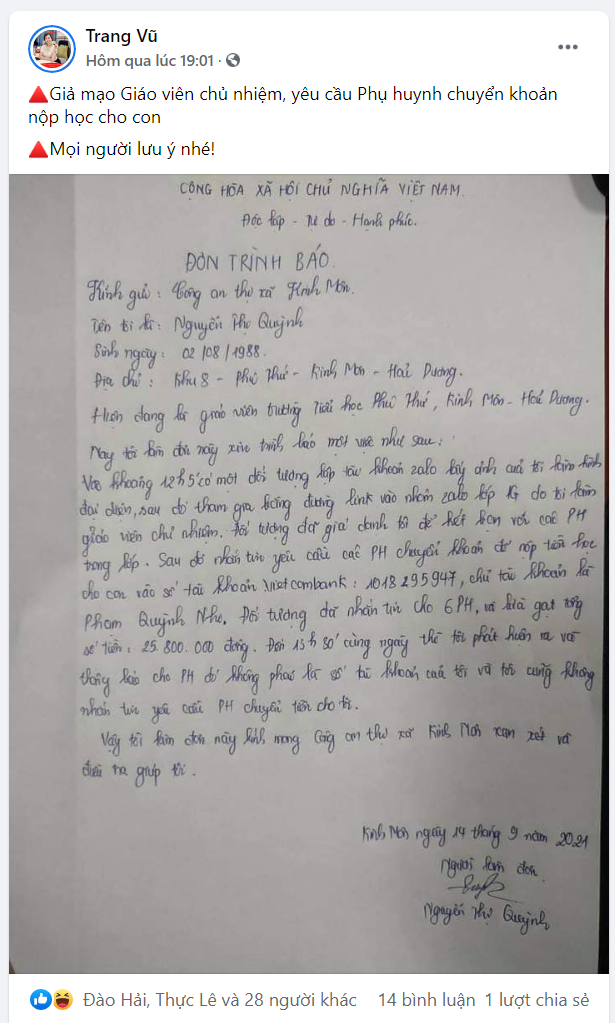 Trang Vũ
Hôm qua lúc 19:01
Giả mạo Giáo viên chủ nhiệm, yêu cầu Phụ huynh chuyển khoản
nộp học cho con
Mọi người lưu ý nhé!
CỘNG HÒA XÃ HỘI CHỦ NGHĨA VIỆT NAM.
Độc lập - Tự do - Hạnh phúc.
ĐƠN TRÌNH BÁO.
Kính gửi : Công an thị xã Kinh Môn.
Tên tôi là : Nguyễn Thị Quỳnh
Sinh ngày : 02/08/1988.
Địa chỉ : Khu 8 - Phú Thứ - Kinh Môn - Hải Dương.
Hiện đang là giáo viên trường Tiểu học Phú Thứ, Kinh Môn - Hải Dương.
Nay tôi làm đơn này xin trình báo một việc như sau :
Vào khoảng 12h5' có một đối tượng lập tài khoản zalo lấy ảnh của tôi làm hình
đại diện, sau đó tham gia bằng đường link vào nhóm zalo lớp 1G do tôi làm
giáo viên chủ nhiệm. Đối tượng đã giả danh tôi để kết bạn với các PH
trong lớp. Sau đó nhắn tin yêu cầu các PH chuyển khoản để nộp tiền học
cho con vào số tài khoản Vietcombank : 1018295947, chủ tài khoản là
Phạm Quỳnh Như. Đối tượng đã nhắn tin cho 6 PH, và lừa gạt tổng
số tiền : 25.800.000 đồng. Đến 13h30' cùng ngày thì tôi phát hiện ra và
thông báo cho PH đó không phải là số tài khoản của tôi và tôi cũng không
nhắn tin yêu cầu PH chuyển tiền cho tôi.
Vậy tôi làm đơn này kính mong Công an thị xã Kinh Môn xem xét và
điều tra giúp tôi.
Kinh Môn ngày 14 tháng 9 năm 2021
Người làm đơn.
Nguyễn Thị Quỳnh
Đào Hải, Thực Lê và 28 người khác 14 bình luận 1 lượt chia sẻ